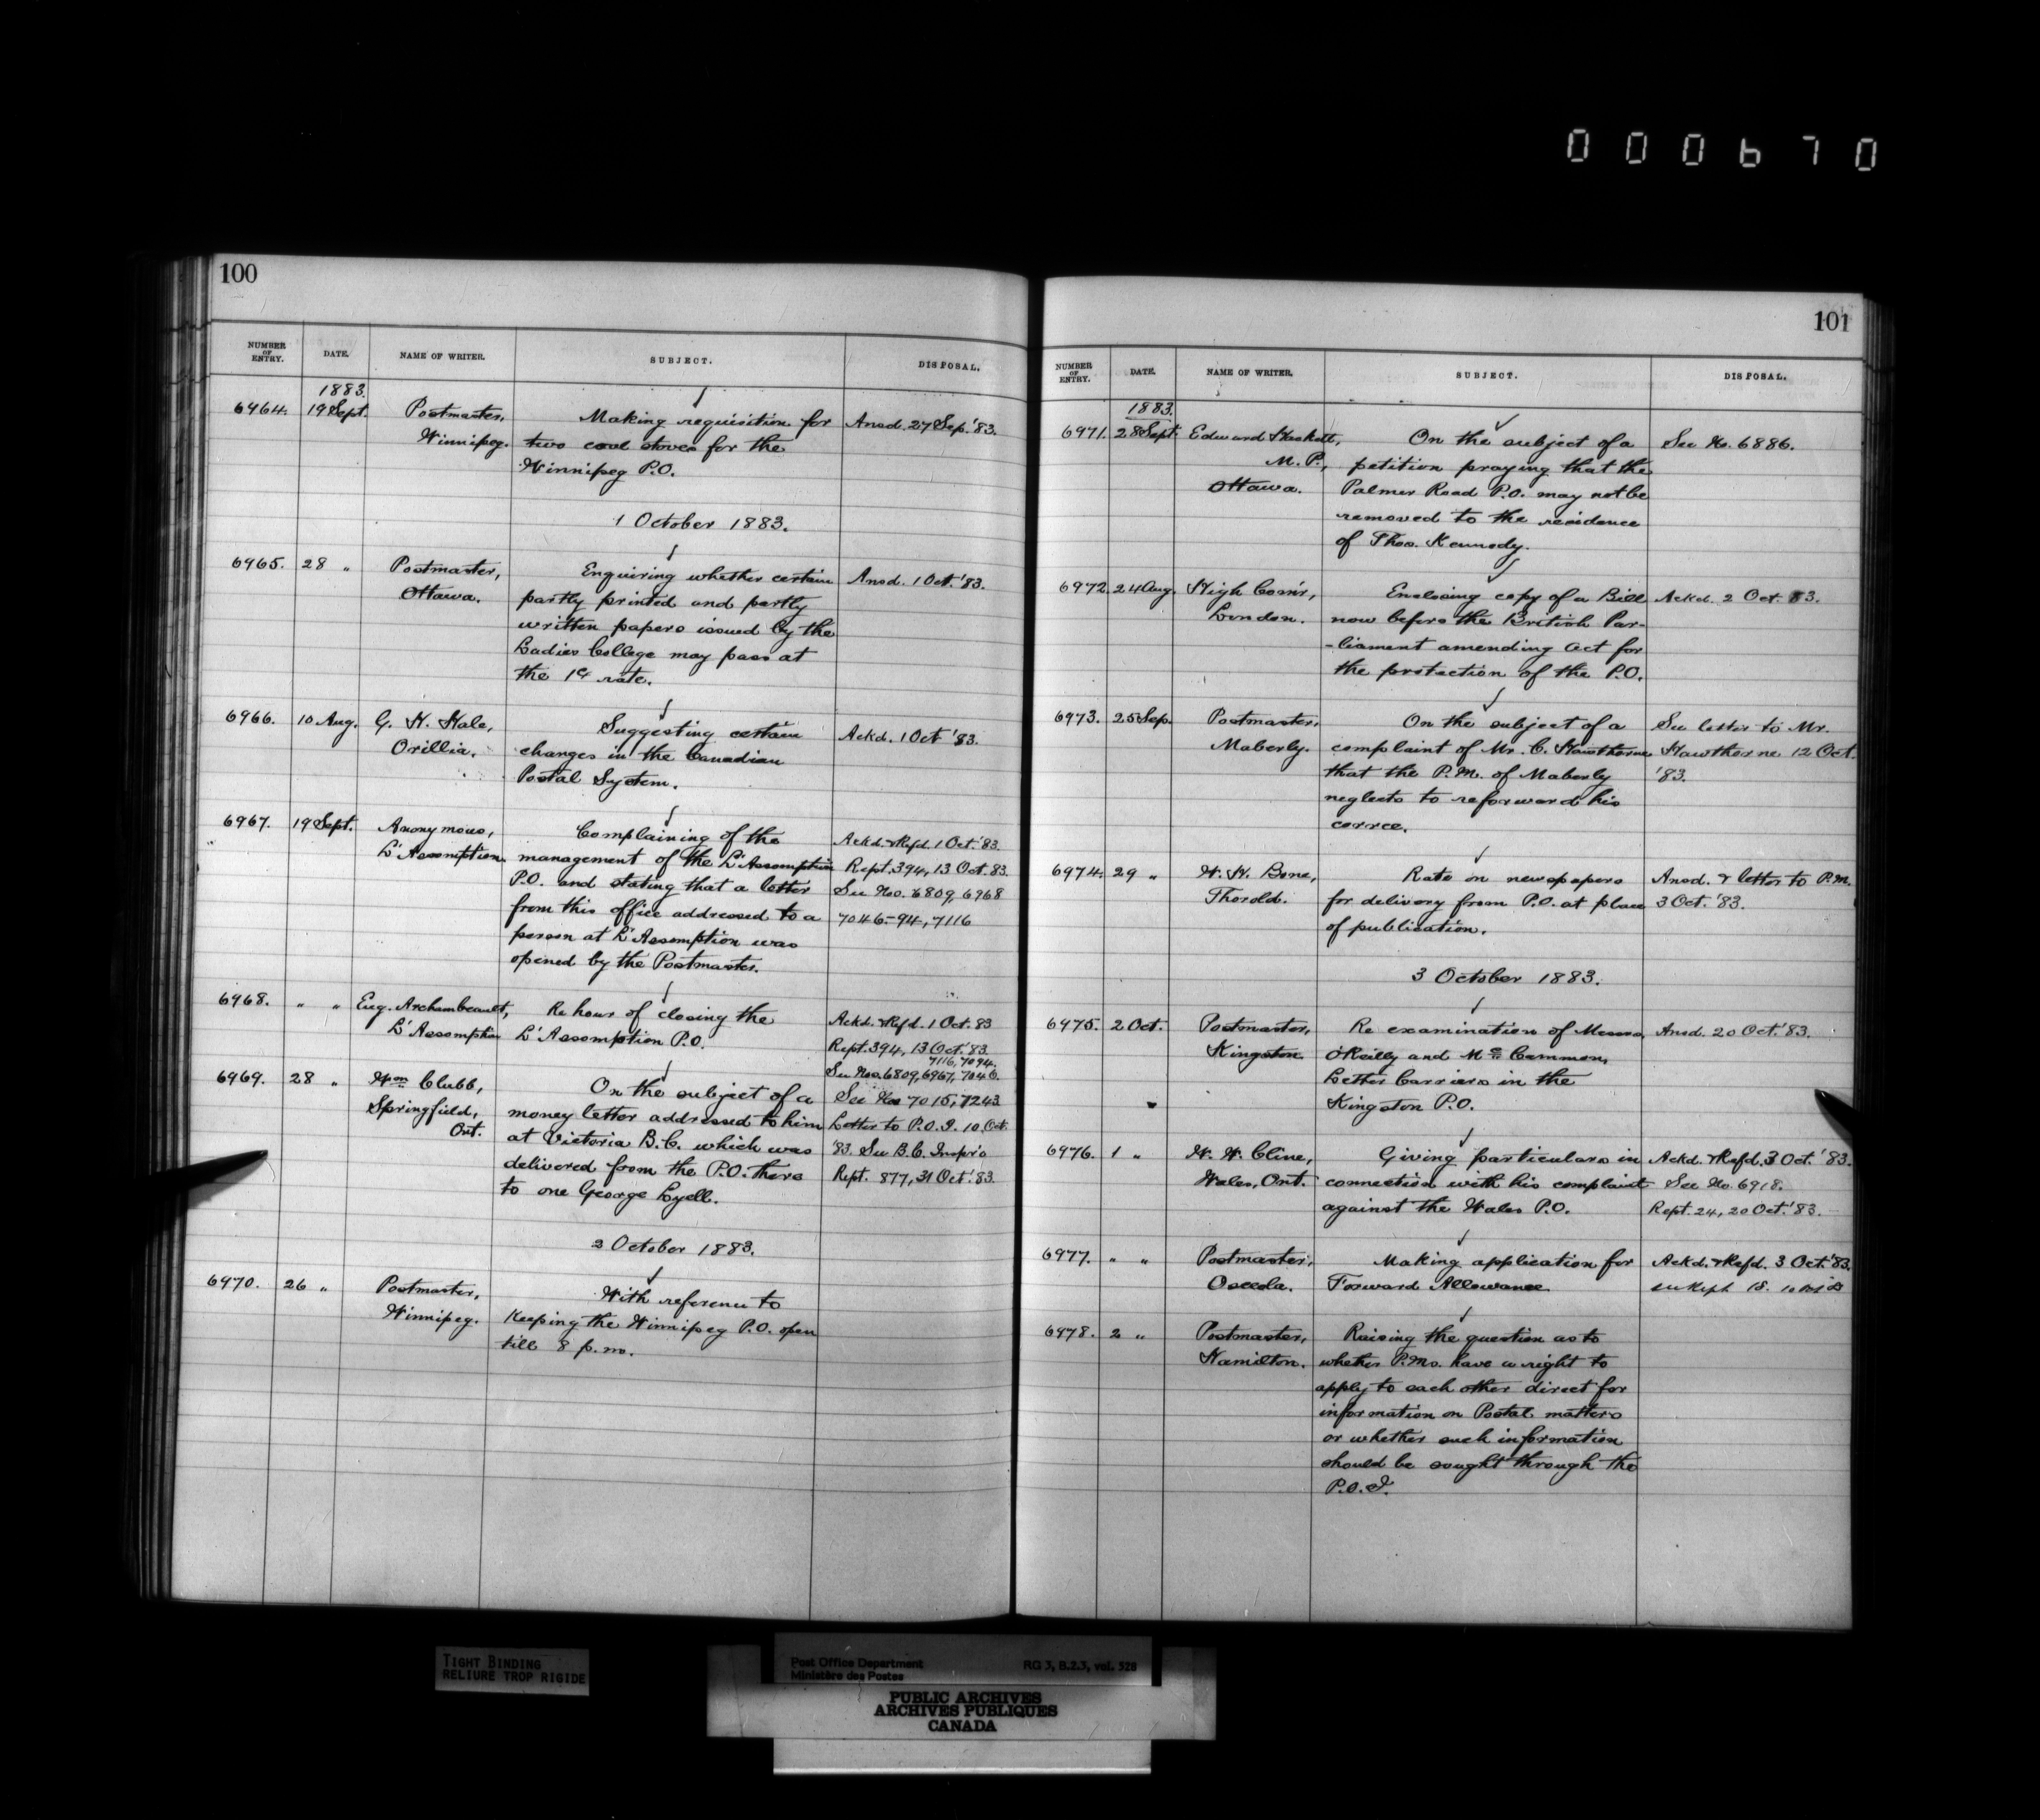 000670
100
NUMBER OF ENTRY. DATE. NAME OF WRITER. SUBJECT. DISPOSAL.
1883.
6964. 19 Sept. Postmaster, Making requisition for Ansd. 27 Sep. '83.
Winnipeg. two coal stoves for the
Winnipeg P.O.
1 October 1883.
6965. 28 " Postmaster, Enquiring whether certain Ansd. 1 Oct. '83.
Ottawa. partly printed and partly
written papers issued by the
Ladies College may pass at
the 1c rate.
6966. 10 Aug. G. H. Hale, Suggesting certain Ackd. 1 Oct '83.
Orillia. changes in the Canadian
Postal System.
6967. 19 Sept. Anonymous, Complaining of the Ackd. & Refd. 1 Oct. '83.
L'Assomption management of the L'Assomption Rept. 394, 13 Oct. 83.
P.O. and stating that a letter See Nos. 6809, 6968
from this office addressed to a 7046-94, 7116
person at L'Assomption was
opened by the Postmaster.
6968. " " Eug. Archambeault, Re hour of closing the Ackd. & Refd. 1 Oct. 83
L'Assomption L'Assomption P.O. Rept. 394, 13 Oct. '83.
7116, 7094.
See Nos. 6809, 6967, 7046.
6969. 28 " Wm Clubb, On the subject of a See Nos 7015, 7243
Springfield, money letter addressed to him Letter to P.O.I. 10 Oct.
Ont. at Victoria B.C. which was '83. See B.C. Inspr's
delivered from the P.O. there Rept. 877, 31 Oct. '83.
to one George Lyell.
2 October 1883.
6970. 26 " Postmaster, With reference to
Winnipeg. keeping the Winnipeg P.O. open
till 8 p.m.
101
NUMBER OF ENTRY. DATE. NAME OF WRITER. SUBJECT. DISPOSAL.
1883.
6971. 28 Sept. Edward Haskett, On the subject of a See No. 6886.
M.P., petition praying that the
Ottawa. Palmer Road P.O. may not be
removed to the residence
of Thos. Kennedy.
6972. 24 Aug. High Comr, Enclosing copy of a Bill Ackd. 2 Oct. 83.
London. now before the British Par-
-liament amending Act for
the protection of the P.O.
6973. 25 Sep. Postmaster, On the subject of a See letter to Mr.
Maberly. complaint of Mr. C. Hawthorne Hawthorne 12 Oct.
that the P.M. of Maberly '83.
neglects to reforward his
corrce.
6974. 29 " W. H. Bone, Rate on newspapers Ansd. & letter to P.M.
Thorold. for delivery from P.O. at place 3 Oct. '83.
of publication.
3 October 1883.
6975. 2 Oct. Postmaster, Re examination of Messrs. Ansd. 20 Oct. '83.
Kingston O'Reilly and McCammon,
Letter Carriers in the
Kingston P.O.
6976. 1 " W. W. Cline, Giving particulars in Ackd. & Refd. 3 Oct. '83.
Wales, Ont. connection with his complaint See No. 6918.
against the Wales P.O. Rept. 24, 20 Oct. '83.
6977. " " Postmaster, Making application for Ackd. & Refd. 3 Oct. '83.
Osceola. Forward Allowance
6978. 2 " Postmaster, Raising the question as to
Hamilton. whether P.Ms. have a right to
apply to each other direct for
information on Postal matters
or whether such information
should be sought through the
P.O.I.
TIGHT BINDING
RELIURE TROP RIGIDE
Post Office Department RG 3, B.2.3, vol. 528
Ministère des Postes
PUBLIC ARCHIVES
ARCHIVES PUBLIQUES
CANADA